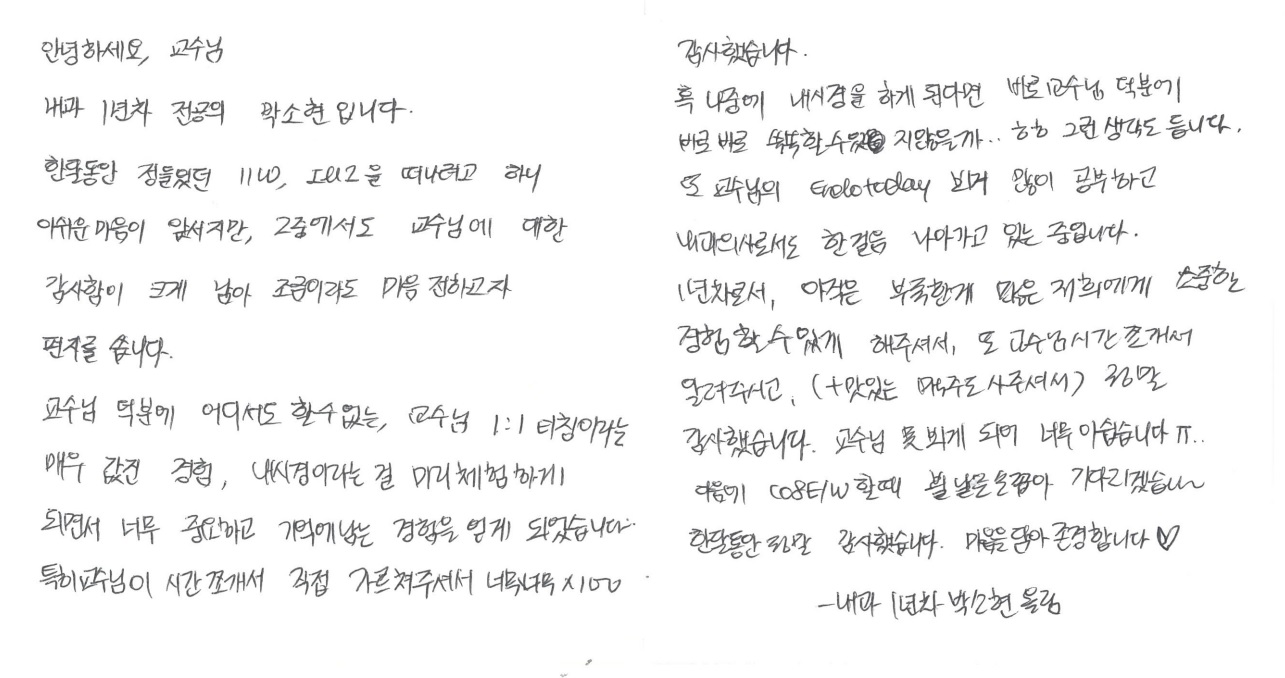 안녕하세요, 교수님
내과 1년차 전공의 곽소현입니다.
한달동안 정들었던 11W, ICU2을 떠나려고 하니
아쉬운 마음이 앞서지만, 그중에서도 교수님에 대한
감사함이 크게 남아 조금이라도 마음 전하고자
편지를 씁니다.
교수님 덕분에 어디서도 할수없는, 교수님 1:1 티칭이라는
매우 값진 경험, 내시경이라는 걸 미리 체험하게
되면서 너무 중요하고 기억에남는 경험을 얻게 되었습니다.
특히 교수님이 시간 쪼개서 직접 가르쳐주셔서 너무너무 x100
감사했습니다.
혹 나중에 내시경을 하게 된다면 바로 교수님 덕분에
바로바로 똑똑할수있 지않을까.. ㅎㅎ 그런 생각도 듭니다.
또 교수님의 Endotoday 보며 많이 공부하고
내과의사로서도 한걸음 나아가고 있는 중입니다.
1년차로서, 아직은 부족한게 많은 저희에게 소중한
경험할수있게 해주셔서, 또 교수님 시간 쪼개서
알려주시고, (+맛있는 맥주도 사주셔서) 정말
감사했습니다. 교수님 못 뵈게 되어 너무 아쉽습니다 ㅠ..
다음에 할때 뵐 날만 손꼽아 기다리겠습니다
한달동안 정말 감사했습니다. 마음을 담아 존경합니다 ♡
-내과 1년차 박소현 올림